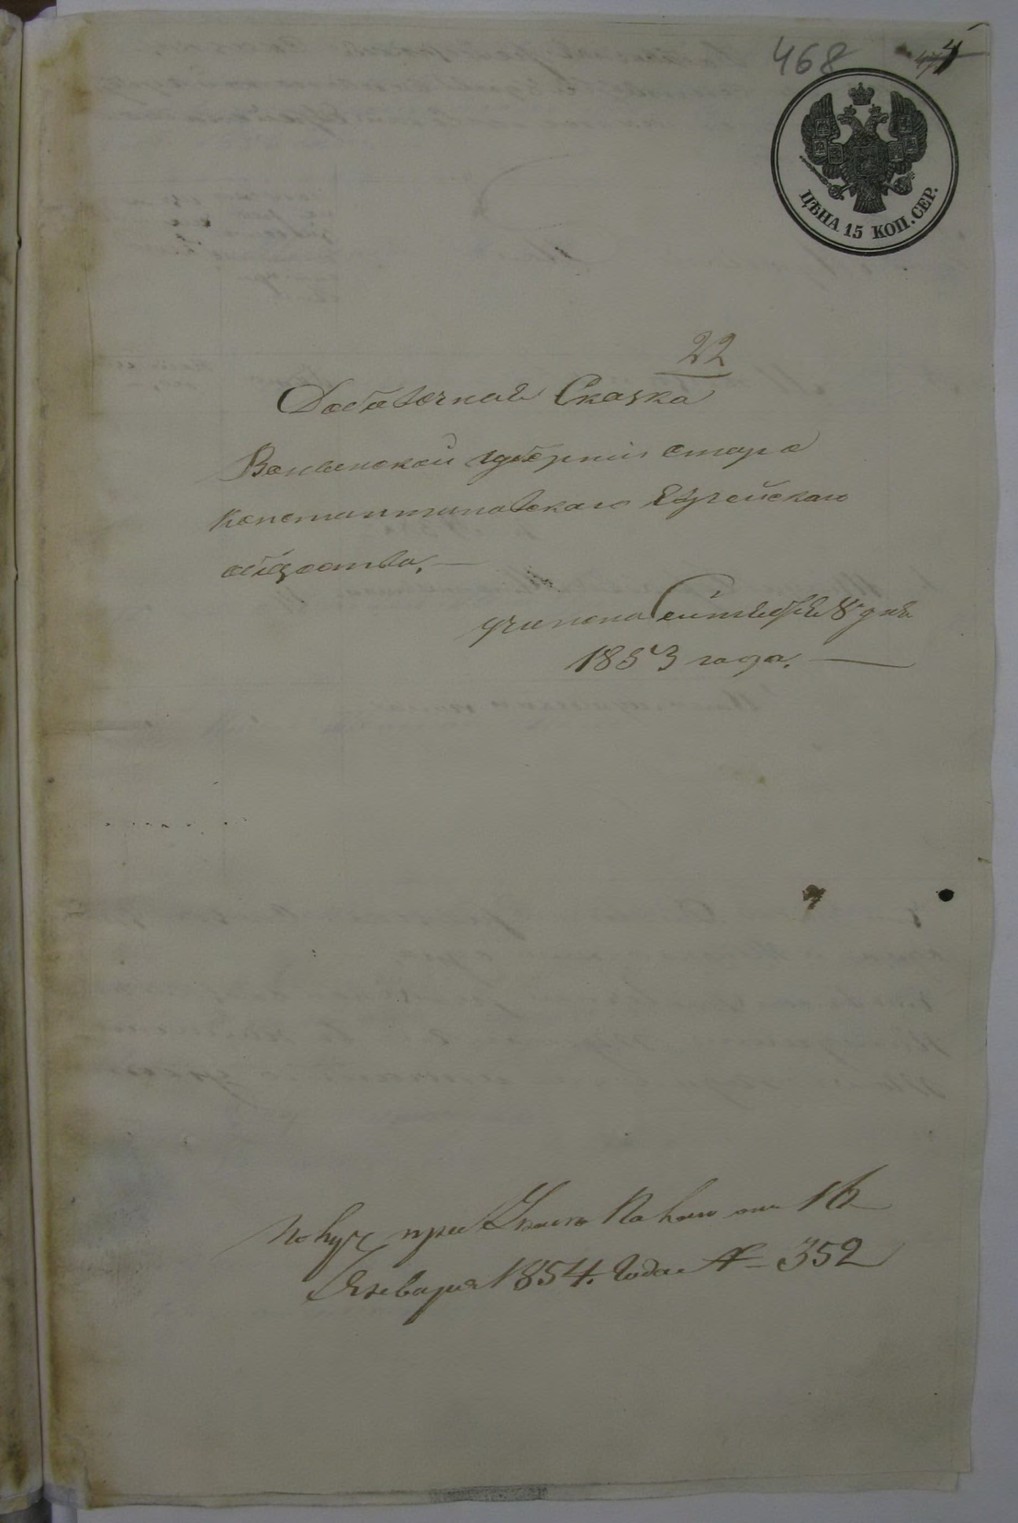 468
4
ЦѢНА 15 КОП. СЕР.
22
Добавочная Сказка
Волынской губернiи старо
константиновскаго Еврейскаго
общества.
учинена Сентября 8 дня
1853 года.
Получ при Указе по коему от 16
Января 1854. Года № 352